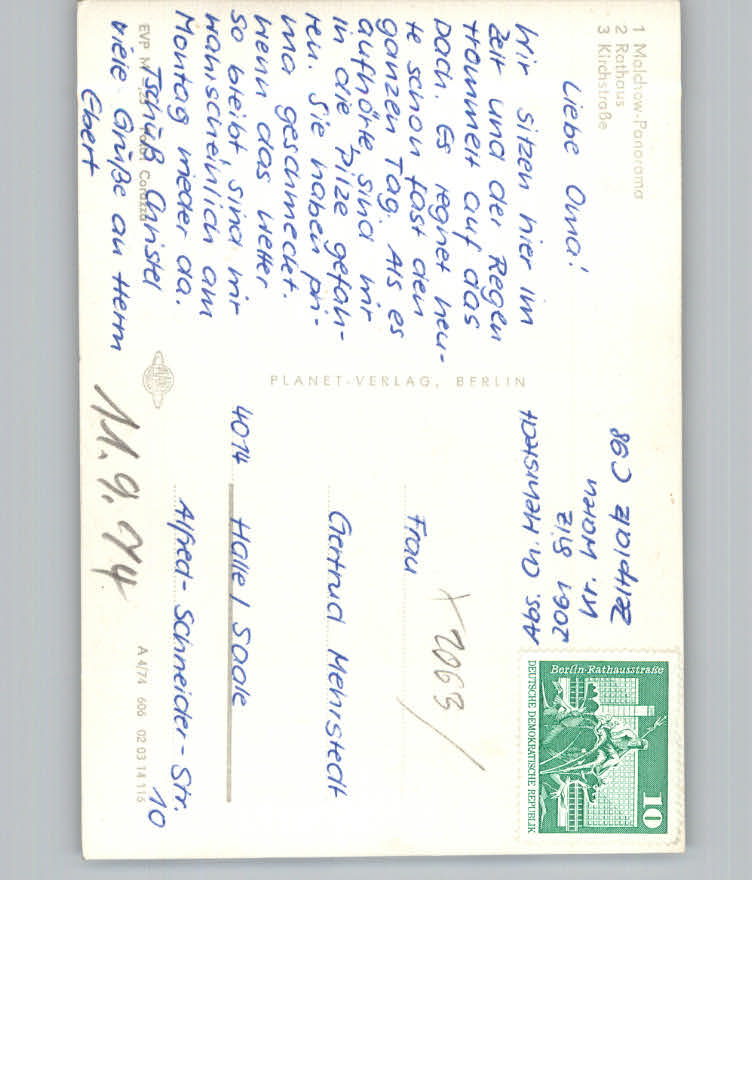 1 Malchow-Panorama
2 Rathaus
3 Kirchstraße
Liebe Oma!
Wir sitzen hier im
Zelt und der Regen
trommelt auf das
Dach. Es regnet heu-
te schon fast den
ganzen Tag. Als es
aufhörte, sind wir
in die Pilze gefah-
ren. Sie haben pri-
ma geschmeckt.
Wenn das Wetter
so bleibt, sind wir
wahrscheinlich am
Montag wieder da.
Tschüß Christel
viele Grüße an Herrn
Ebert
EVP M
PLANET-VERLAG, BERLIN
Abs. Ch. Mehrstedt
2061
Kr. Waren
Zeltplatz C98
Berlin-Rathausstraße
10
DEUTSCHE DEMOKRATISCHE REPUBLIK
X 2063 /
Frau
Gertrud Mehrstedt
4014 Halle / Saale
Alfred-Schneider-Str.
10
11.9.74
A 4/74 606 02 03 14 116